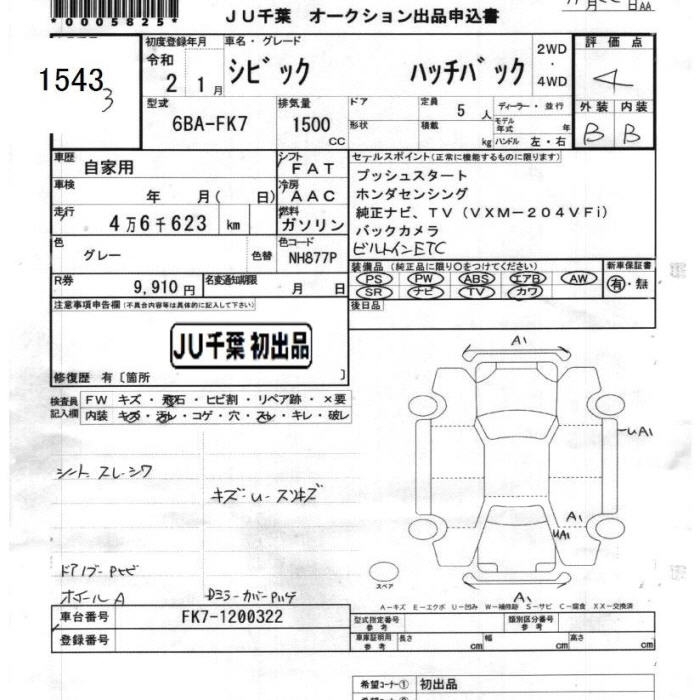 *0005825*
JU千葉 オークション出品申込書
月 日AA
1543
3
初度登録年月
令和
2 1月
車名・グレード
シビック ハッチバック
2WD
・
4WD
評価点
4
外装 内装
B B
型式
6BA-FK7
排気量
1500
CC
ドア
形状
定員 5人
積載 kg
ディーラー・並行
モデル年式 年
ハンドル 左・右
車歴
自家用
シフト
FAT
車検
年 月( 日)
冷房
AAC
走行
4万6千623 km
燃料
ガソリン
色
グレー
色替
色コード
NH877P
R券
9,910円
名変通知期限
月 日
セールスポイント(正常に機能するものに限ります)
プッシュスタート
ホンダセンシング
純正ナビ、TV(VXM-204VFi)
バックカメラ
ビルトインETC
装備品(純正品に限り○をつけてください)
PS PW ABS エアB AW
SR ナビ TV カワ
新車保証書
有・無
後日品
注意事項申告欄(不具合内容等は具体的に記入して下さい)
JU千葉 初出品
修復歴 有〔箇所 〕
検査員
記入欄
FW キズ・飛石・ヒビ割・リペア跡・×要
内装 キズ・汚レ・コゲ・穴・スレ・キレ・破レ
シート スレ・シワ
キズ・U・スリキズ
ドアノブ・Pヒビ
ホイールA
DミラーカバーPハゲ
A1
UA1
A1
UA1
A1
スペア
A-キズ E-エクボ U-凹み W-補修跡 S-サビ C-腐食 XX-交換済
車台番号
FK7-1200322
登録番号
型式指定番号
参考
類別区分番号
参考
車庫証明用
参考
長さ cm
幅 cm
高さ cm
希望コーナー① 初出品
希望コーナー②